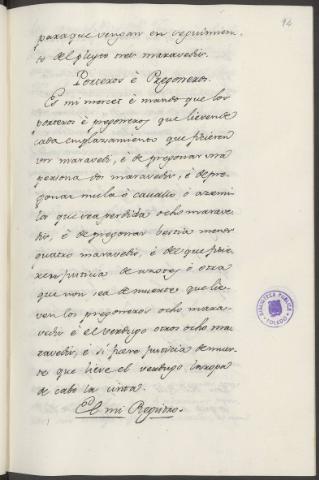 94
para que vengan en seguimien-
to del pleyto tres maravedis.
Porteros è Pregoneros.
Es mi mercet è mando que los
porteros è pregoneros que lieven de
cada emplazamiento que ficieren
un maravedi, è de pregonar una
persona dos maravedis, è de pre-
gonar mula ò cavallo è azemi-
la que sea perdida ocho marave-
dis, è de pregonar bestia menor
quatro maravedis, è del que ficie-
ren justicia de azotes è otra
que non sea de muerte que lie-
ven los pregoneros ocho mara-
vedis è el verdugo otros ocho ma-
ravedis, è si fuere justicia de muer-
te que lieve el verdugo la ropa
de cabo la cinta.
El mi Registro.
BIBLIOTECA PUBLICA
TOLEDO